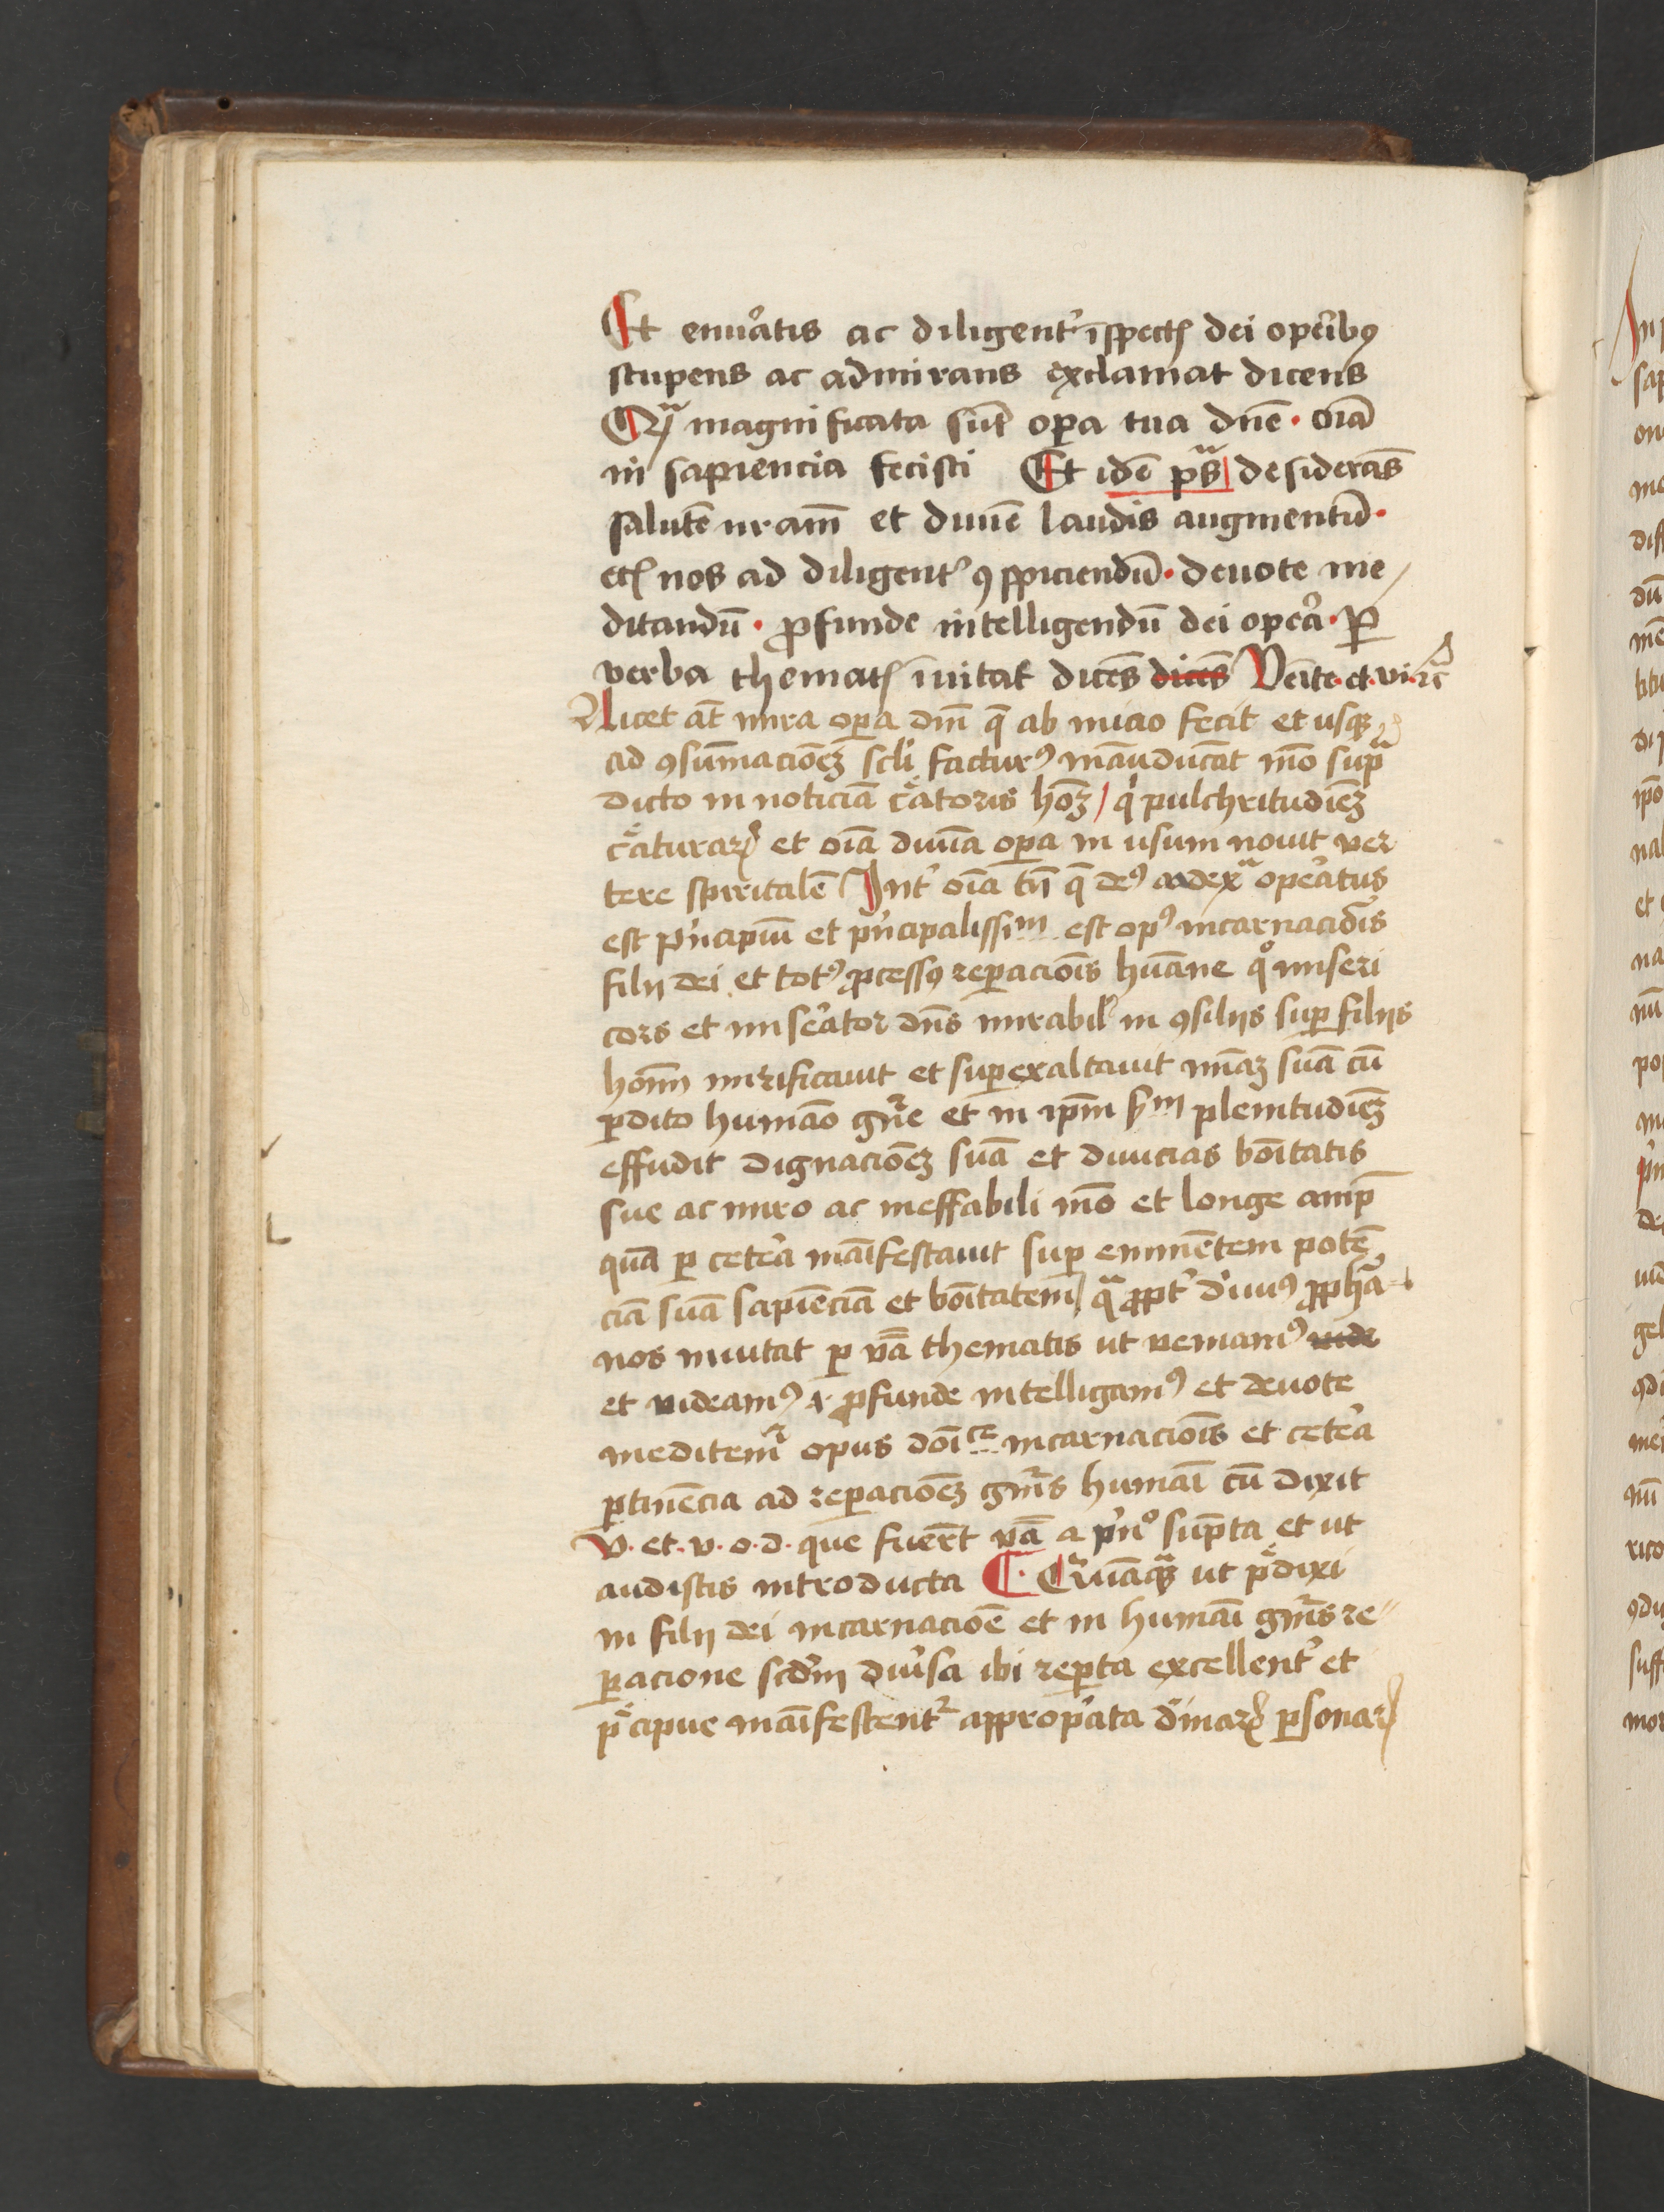 Et enuͦatis ac diligent᷑ īspectꝭ dei oꝑibꝰ
stupens ac admirans exclamat dicens
Qᷓ magnificata sūt oꝑa tua dn̄e · oīa
in sapiencia fecisti Et idē ps̄ᵃ desiderās
salutē nr̄am et diuīe laudis augmentū ·
etꝭ nos ad diligent᷑ ꝯspiciendū · deuote me
ditandū · ꝓfunde intelligendū dei oꝑa · Ꝑ
verba thematꝭ īuitat dicēs dicēs Veīte · et · vi · ꝛc̄
Licet āt mira oꝑa dn̄i q̄ ab inicio fecit et usqꝫ
ad ꝯsūmacōeꝫ scl̄i facturꝰ māuducāt mō supᷓ
dicto in noticiā cᷓatoris hoīeꝫ / qͥ pulchritudīeꝫ
cᷓaturaꝝ et oīa diuīa oꝑa in usum nouit ver
tere spiritalē Int᷑ oīa tn̄ q̄ deꝰ ad exᵃ oꝑatus
est pͥncipiū et pͥncipalissiᵐ est opꝰ incarnacōis
filij dei et totꝰ ꝓcessꝰ reꝑacōis hūane qͦ miseri
cors et miserator dn̄s mirabilꝭ in ꝯsilijs suꝑ filijs
hoīm mirificauit et suꝑexaltauit mīaꝫ suā cū
ꝑdito humāo gn̄e et in ip̄m sᵐ plenitudīeꝫ
effudit dignacōeꝫ suā et diuicias boītatis
sue ac miro ac ineffabili mō et longe amp̄
quā ꝑ cetera māifestauit suꝑ eminētem potē
ciā suā sapiēciā et boītatem / qᷓ ꝓpt᷑ diuinꝰ ꝓphā
nos inuitat ꝑ vͣba thematis ut veniamꝰ vide
et videamꝰ ⁊ ꝓfunde intelligamꝰ et deuote
meditem᷑ opus doīᶜᵉ incarnacōis et cetera
ꝑtinēcia ad reꝑacōeꝫ gn̄is humāi cū dixit
V · et · v · o · d · que fuer̄t vͣba a pͥnͦ sūpta et ut
audistis introducta C · Quāqᷓꝫ ut pᷓdixi
in filij dei incarnacōe et in humāi gn̄is re
ꝑacione scd̄m diuͥsa ibi reꝑta excellent᷑ et
pᷓcipue māifestent᷑ appropͥata diuinaꝝ ꝑsonaꝝ